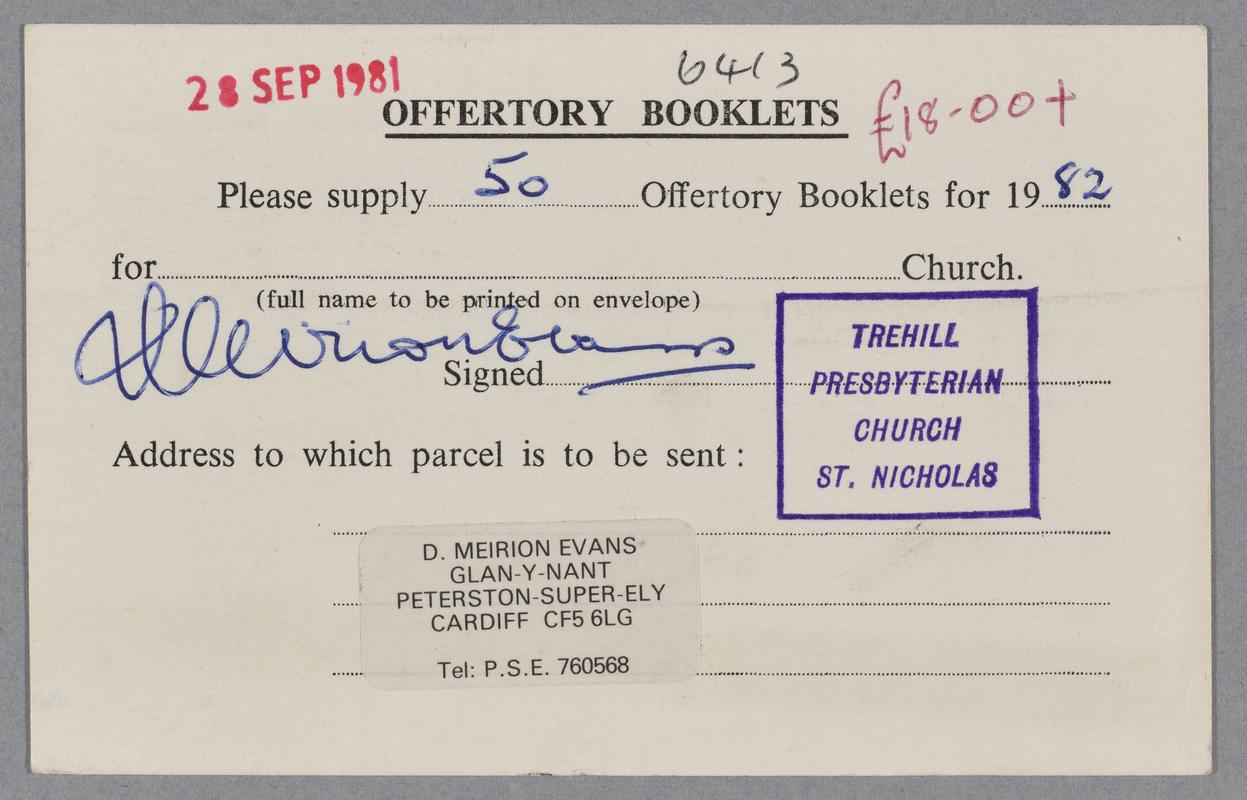 28 SEP 1981
6413
OFFERTORY BOOKLETS
£18-00+
Please supply 50 Offertory Booklets for 1982
for Church.
(full name to be printed on envelope)
D Meirion Evans
Signed
TREHILL
PRESBYTERIAN
CHURCH
ST. NICHOLAS
Address to which parcel is to be sent :
D. MEIRION EVANS
GLAN-Y-NANT
PETERSTON-SUPER-ELY
CARDIFF CF5 6LG
Tel: P.S.E. 760568